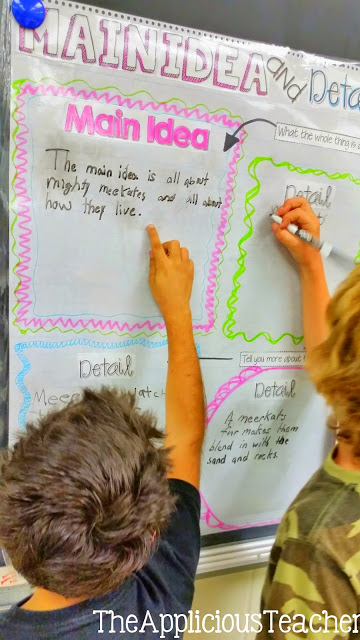 MAIN IDEA and Deta
Main Idea
What the whole thing is a
The main idea is all about
mighty meerkates and all about
how they live.
Detail
Detail
Tell you more about
Detail
A meerkats
fur makes them
blend in with the
sand and rocks.
TheAppliciousTeacher